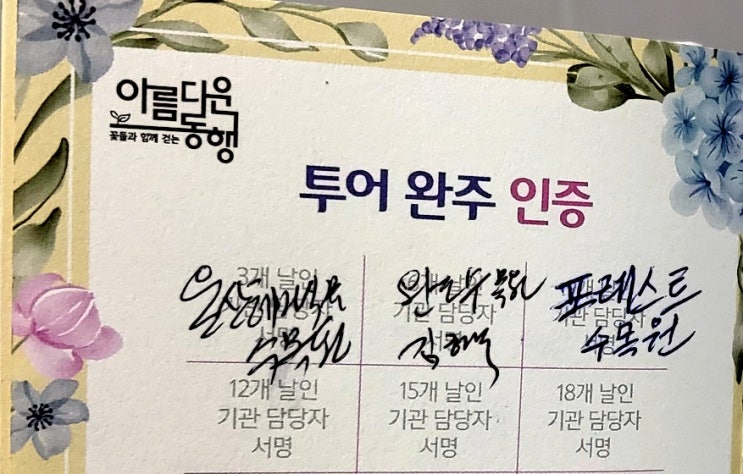 아름다운
동행
꽃들과 함께 걷는
투어 완주 인증
3개 날인
기관 담당자
서명
6개 날인
기관 담당자
서명
기관 담당자
서명
포레스트
수목원
12개 날인
기관 담당자
서명
15개 날인
기관 담당자
서명
18개 날인
기관 담당자
서명